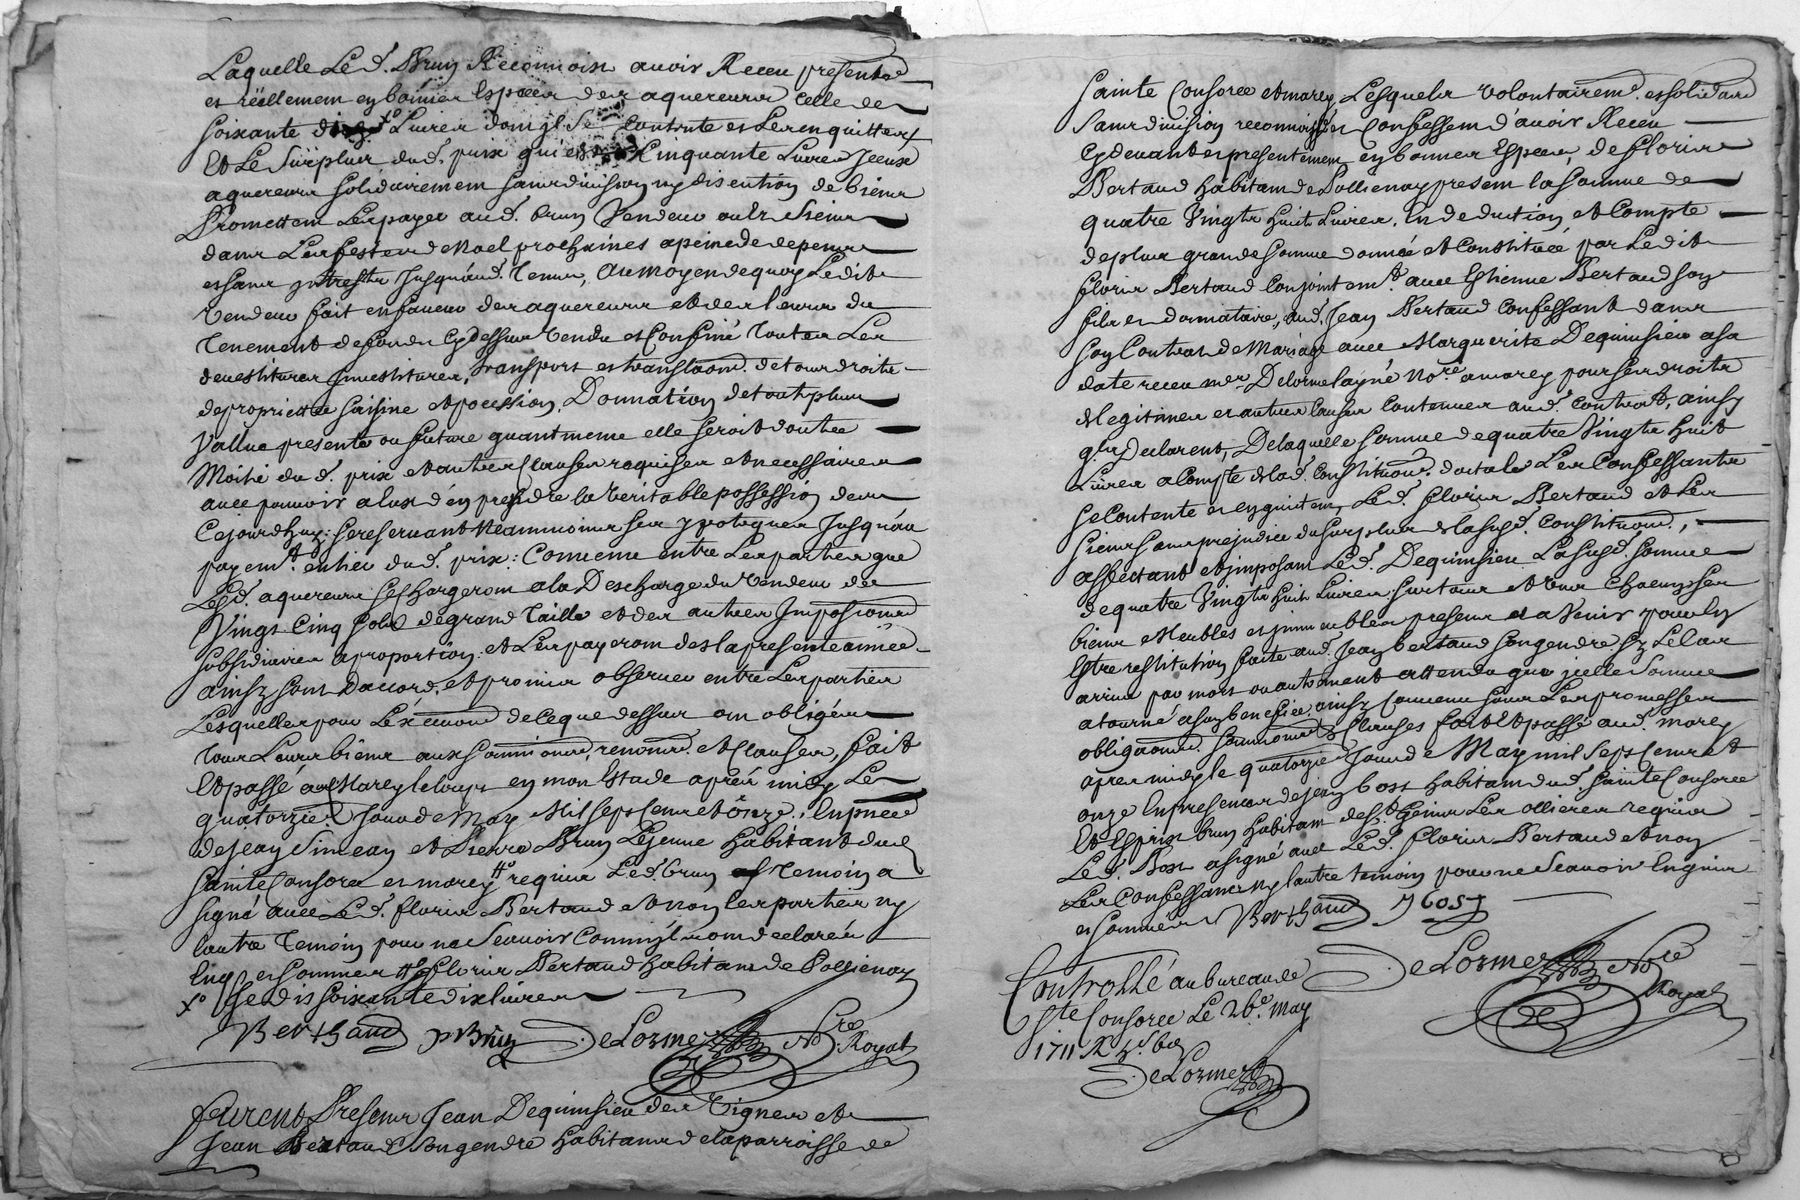 Laquelle Led. Brun Reconnoist avoir Receu presentemt
et réellement en bonnes Especes des aquereurs celle de
soixante dix Livres dont jl Se Contente et Les en quitte
Et Le surplus dud. prix qui est Cinquante Livres Jceux
aquereurs solidairement sans division ny discution de biens
Promettent Les payer aud. brun Vendeur ou es Siens
dans Les festes de Noel prochaines a peine de depens
et sans jntrests Jusquaud. Terme, Au moyen de quoy Ledit
vendeur fait en faveur des aquereurs et des leurs du
Tenement de fonds Cy dessus Vendu et Confiné Toutes Les
devestitures jnvestitures, transport et translaond. de tous droits
de proprietté saisine et possession, Donnation de tout plus
vallue presente ou future quant meme elle seroit doutre
Moitié dud. prix et autres Clauses requises et necessaires
avec pouvoir a eux d'en prendre la veritable possession dans
Cejourdhuy; se reservant Neammoins ses ypoteques Jusquau
payemt. entier dud. prix: Convenu entre Les parties que
Lesd. aquereurs se chargeront a la Descharge du Vendeur de
Vingt Cinq sols de grand Taille et des autres Jmposiond
subsidiaires a proportion et Les payeront des la presente année
ainsy sont Daccord, et promis observer entre Les parties
Lesquelles pour Lexecuond de Ceque dessus ont obligés
Tous Leurs biens aux soumissiond, renonond. et Clauses, fait
Et passé au Marey le loup en mon Estude apres midy Le
quatorzie. Jour de May Mil Sept Cent et onze; En pnce
de Jean Simean et Pierre Brun Lejeune habitant dud
sainte Consorce et marcy requis Led. brun et Temoin a
signé avec Led. floris Bertaud et non les parties ny
lautre Temoin pour ne Scavoir Comm jls ont declarés
Enq. et sommes floris Bertaud habitant de Pollienay
Je dis soixante dix livres
Berthaud pBrun DeLorme Nre
Royal
furent Presents Jean Dequinsieu des Vignes et
Jean Bertaud son gendre habitants de la parroisse de
Sainte Consorce et marcy, Lesquels volontairemt. et solidaird
Sans division reconnoissent et Confessent d'avoir Receu
Cy devant et presentement en bonnes Especes, de floris
Bertaud habitant de Pollienay present la somme de
quatre Vingts huit Livres, En deduction et Compte
de plus grande somme donnée et Constituée par Ledit
floris Bertaud Conjointemt. avec Estienne Bertaud son
fils et donnataire, aud. Jean Bertaud Confessant dans
son Contrat de Mariage avec Marguerite Dequinsieu a sa
date receu mer Delorme layné Nore. a marcy pour ses droits
de legitimes et autres Causes Contenues aud. Contrat, ainsy
qls Declarent, De laquelle somme de quatre Vingts huit
Livres a Compte de lad. Constituond. dotale Les Confessants
se Contente et en quittent Led. floris Bertaud et Les
siens sans prejudice du surplus de la susd. Constituond.,
affectant et jmposant Led. Dequinsieu La susd. somme
de quatre Vingts huit Livres sur tous et Uns Chacuns ses
biens Meubles et jmmeubles presens et a Venir pour En
Estre restitution faite aud. Jean bertaud son gendre sy Le Cas
arrive par mort ou autrement attendu que jcelle somme
a tourné a son benefice, ainsy Convenu sous Les promesses
obligaond. soumiond. et Clauses fait et passé aud. marcy
apres midy le quatorzie. Jour de May mil sept Cent et
onze En presence de jean bost habitant dud. Sainte Consorce
Et Esprit brun habitant de St. Genis Les ollieres requis
Led. Bost a signé avec Led. floris Bertaud et non
Les Confessants ny lautre temoin pour ne Scavoir Enquis
et sommés Berthaud Jbost
DeLorme Nre
Royal
Controllé au bureau de
Ste Consorce Le 26e. May
1711
DeLorme